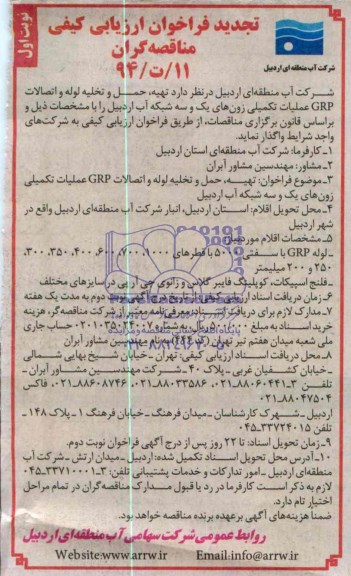 نوبت اول
تجدید فراخوان ارزیابی کیفی
مناقصه‌گران
۹۴/ت/۱۱
شرکت آب منطقه ای اردبیل
شرکت آب منطقه‌ای اردبیل درنظر دارد تهیه، حمل و تخلیه لوله و اتصالات
GRP عملیات تکمیلی زون‌های یک و سه شبکه آب اردبیل را با مشخصات ذیل و
براساس قانون برگزاری مناقصات، از طریق فراخوان ارزیابی کیفی به شرکت‌های
واجد شرایط واگذار نماید.
۱ـ کارفرما: شرکت آب منطقه‌ای استان اردبیل
۲ـ مشاور: مهندسین مشاور آبران
۳ـ موضوع فراخوان: تهیه، حمل و تخلیه لوله و اتصالات GRP عملیات تکمیلی
زون‌های یک و سه شبکه آب اردبیل
۴ـ محل تحویل اقلام: استان اردبیل، انبار شرکت آب منطقه‌ای اردبیل واقع در
شهر اردبیل
۵ـ مشخصات اقلام مورد نیاز:
ـ لوله GRP با سفتی ۵۰۰۰ با قطرهای ۱۰۰۰، ۷۰۰، ۶۰۰، ۴۰۰، ۳۵۰، ۳۰۰،
۲۵۰ و ۲۰۰ میلیمتر
ـ فلنج اسپیکات، کوپلینگ فایبر گلاس و زانوی جی آر پی در سایزهای مختلف
۶ـ زمان دریافت اسناد ارزیابی کیفی: از تاریخ درج آگهی نوبت دوم به مدت یک هفته
۷ـ مدارک لازم برای دریافت اسناد: معرفی‌نامه معتبر از شرکت مناقصه‌گر، هزینه
خرید اسناد به مبلغ ریال به شماره حساب جاری
ملی شعبه میدان هفتم تیر تهران به نام مهندسین مشاور آبران
۸ـ محل دریافت اسناد ارزیابی کیفی: تهران ـ خیابان شیخ بهایی شمالی
ـ خیابان کشفیان غربی ـ پلاک ۴۰ ـ شرکت مهندسین مشاور آبران ـ
تلفن ۳ـ۸۸۰۶۰۴۴۱ـ۰۲۱، ۸۸۰۳۳۵۸۶ـ۰۲۱، ۸۸۶۰۸۷۴۶ـ۰۲۱، فاکس
۸۸۰۴۷۵۰۴ـ۰۲۱
اردبیل ـ شهرک کارشناسان ـ میدان فرهنگ ـ خیابان فرهنگ ۱ ـ پلاک ۱۴۸ ـ
تلفن ۳۳۷۲۴۰۱۵ـ۰۴۵
۹ـ زمان تحویل اسناد: تا ۲۲ روز پس از درج آگهی فراخوان نوبت دوم.
۱۰ـ آدرس محل تحویل اسناد تکمیل شده: اردبیل ـ میدان ارتش ـ شرکت آب
منطقه‌ای اردبیل ـ امور تدارکات و خدمات پشتیبانی تلفن: ۳ـ۳۳۷۱۰۰۰۱ـ۰۴۵
لازم به ذکر است کارفرما در رد یا قبول مدارک مناقصه‌گران در تمام مراحل
اختیار تام دارد.
ضمناً هزینه‌های آگهی بر عهده برنده مناقصه خواهد بود.
روابط عمومی شرکت سهامی آب منطقه‌ای اردبیل
Website:www.arrw.ir Email:info@arrw.ir